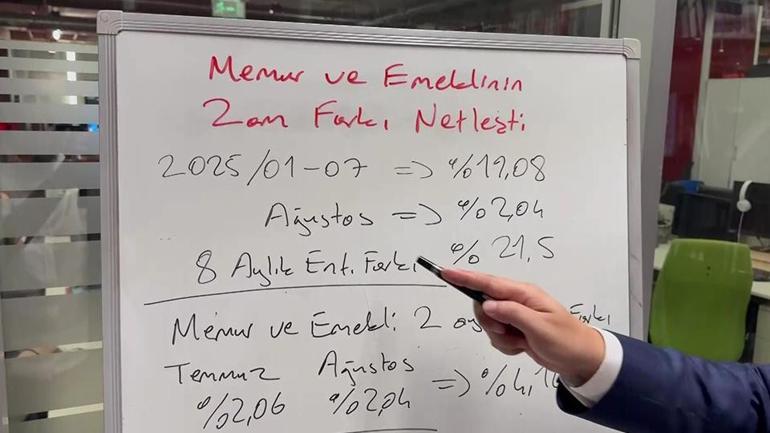 Memur ve Emeklinin
Zam Farkı Netleşti
2025/01-07 => %19,08
Ağustos => %2,04
8 Aylık Enf. Farkı %21,5
Memur ve Emekli 2 ay Farkı
Temmuz Ağustos
%2,06 %2,04 => %4,1